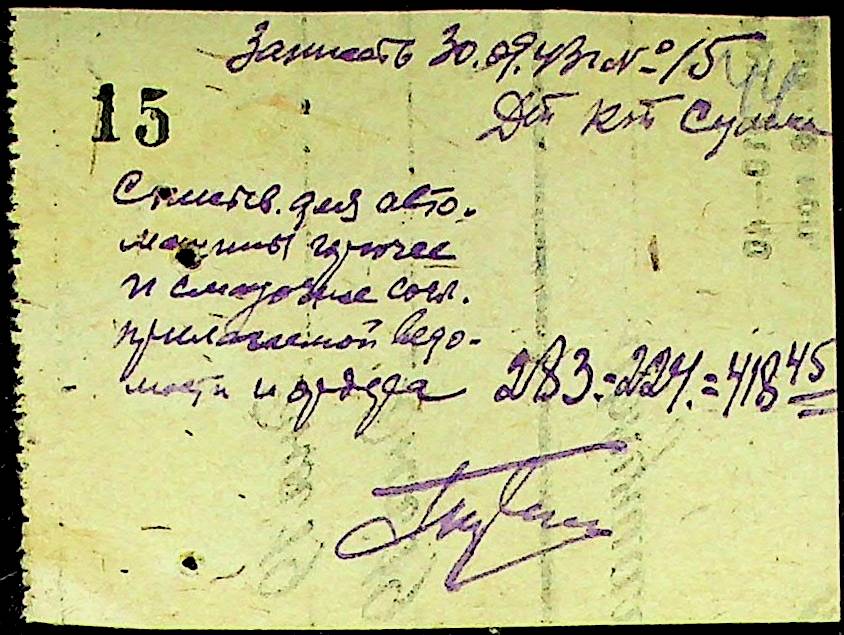 Записать 30.09.43г № 15
15
Дт Кт Сумма
Списыв. для авто-
машины горючее
и смазочное согл.
прилагаемой ведо-
мости и ордера 283.= 224.= 418 45